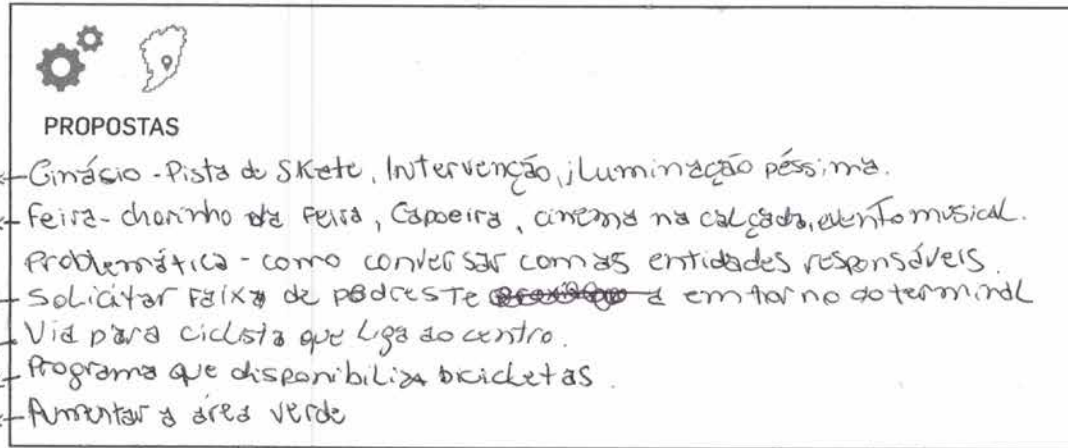 PROPOSTAS
Ginásio - Pista de Skate, Intervenção, iluminação péssima.
Feira - chorinho da Feira, Capoeira, cinema na calçada, evento musical.
Problemática - como conversar com as entidades responsáveis.
Solicitar Faixa de pedreste a em torno do terminal
Via para ciclista que liga ao centro.
Programa que disponibiliza bicicletas.
Aumentar a área verde